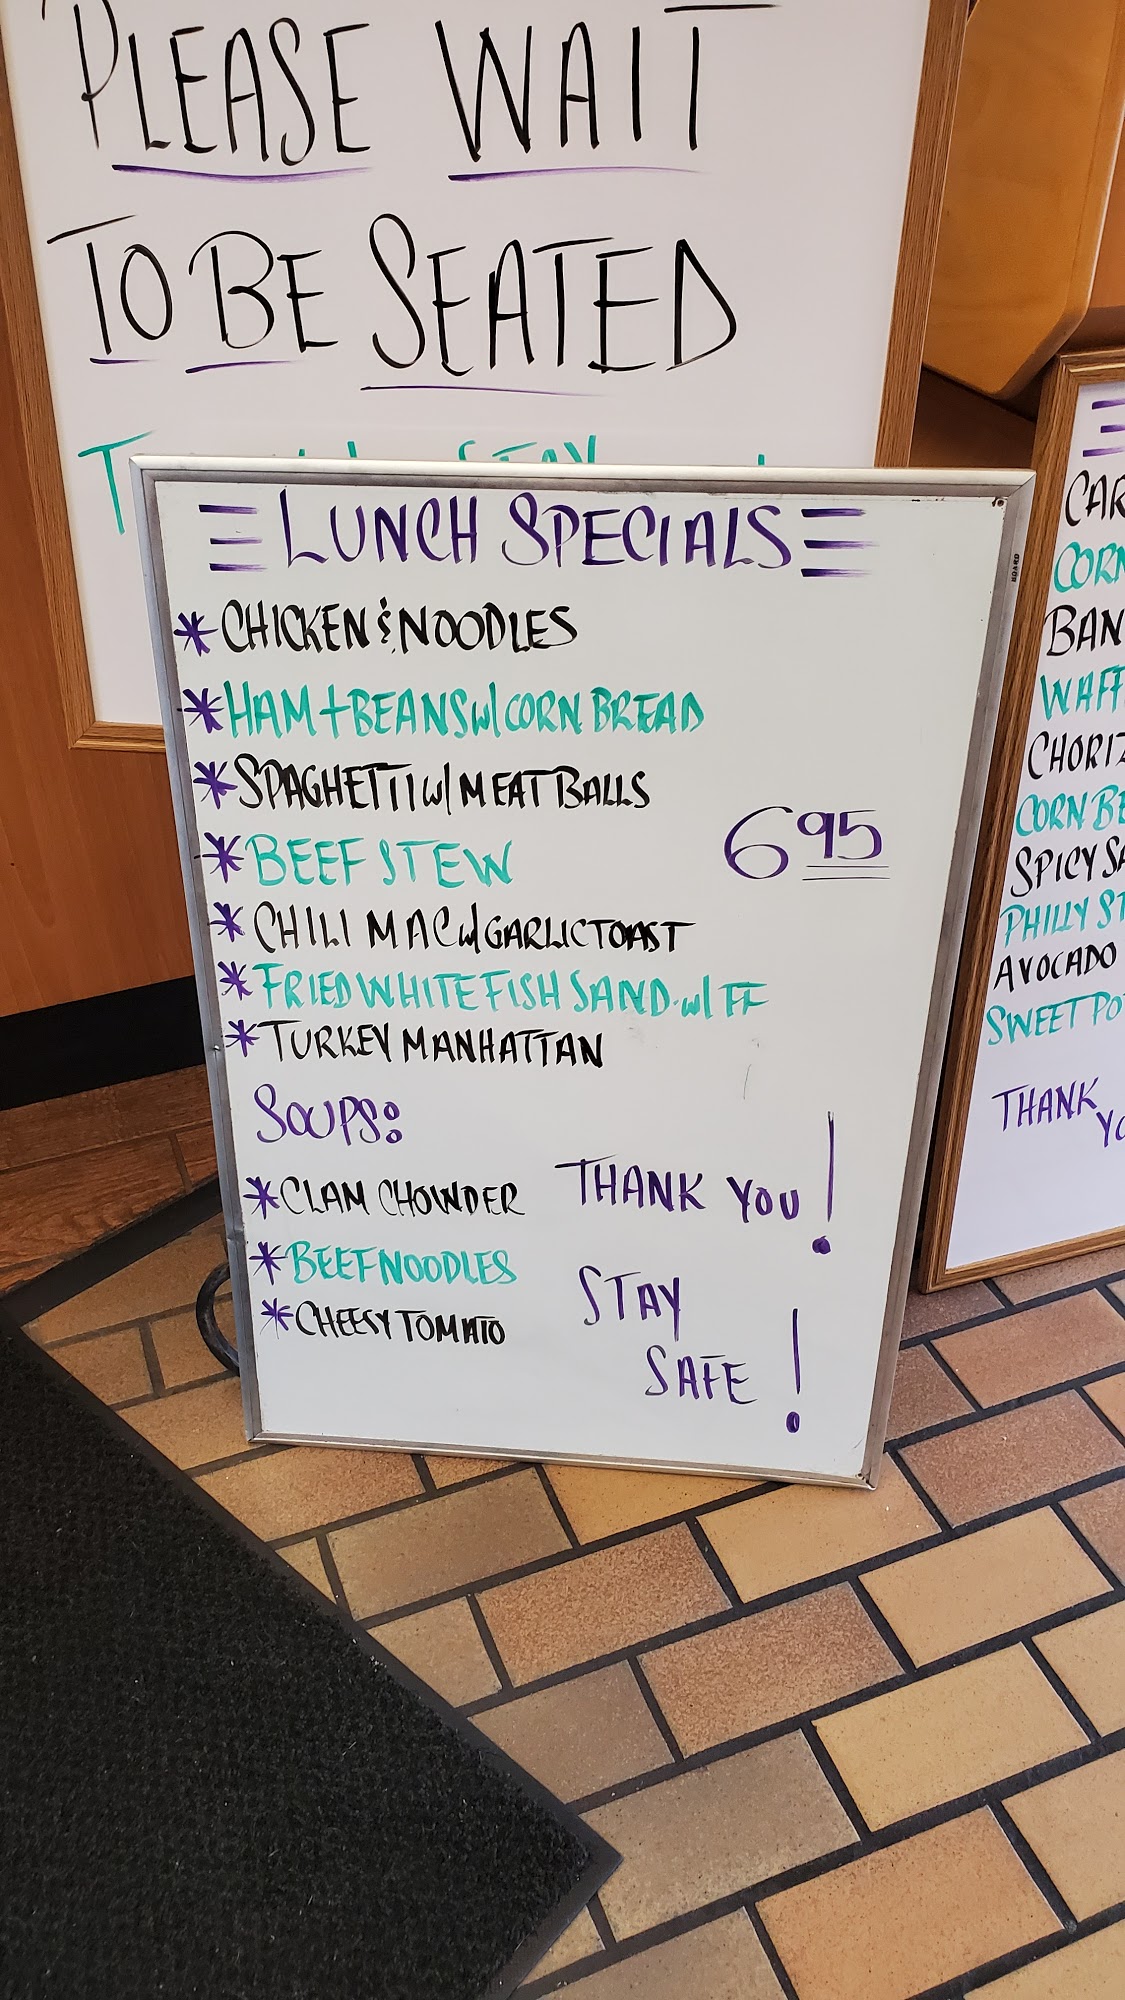 PLEASE WAIT
TO BE SEATED
STAY
LUNCH SPECIALS
* CHICKEN & NOODLES
* HAM + BEANS w/ CORN BREAD
* SPAGHETTI w/ MEAT BALLS
* BEEF STEW
6 95
* CHILI MAC w/ GARLIC TOAST
* FRIED WHITE FISH SAND. w/ FF
* TURKEY MANHATTAN
SOUPS:
* CLAM CHOWDER
* BEEF NOODLES
* CHEESY TOMATO
THANK YOU!
STAY
SAFE!
CORN BE
AVOCADO
THANK